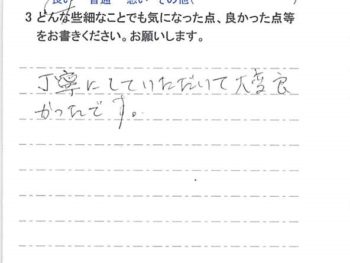 良い 普通 悪い その他(
3 どんな些細なことでも気になった点、良かった点等
をお書きください。お願いします。
丁寧にしていただいて大変良
かったです。